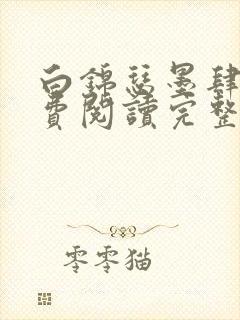 白錦瑟墨肆
費閱讀完整
零零猫